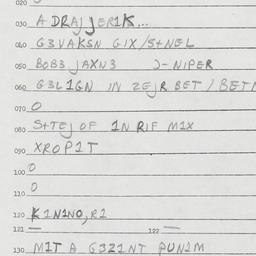 020
030 A DRAJJER1K...
040 G3VAKSN GIX/S+NEL
050 BOB3 JAXN3 J-NIPER
060 G3L1GN IN ZEJR BET / BETN
070 O
080 S+TEJ OF 1N RIF M1X
090 XROP1T
100 O
110 O
120 K1N1NO,R1
121 — 122 —
130 M1T A G3Z1NT PUN1M